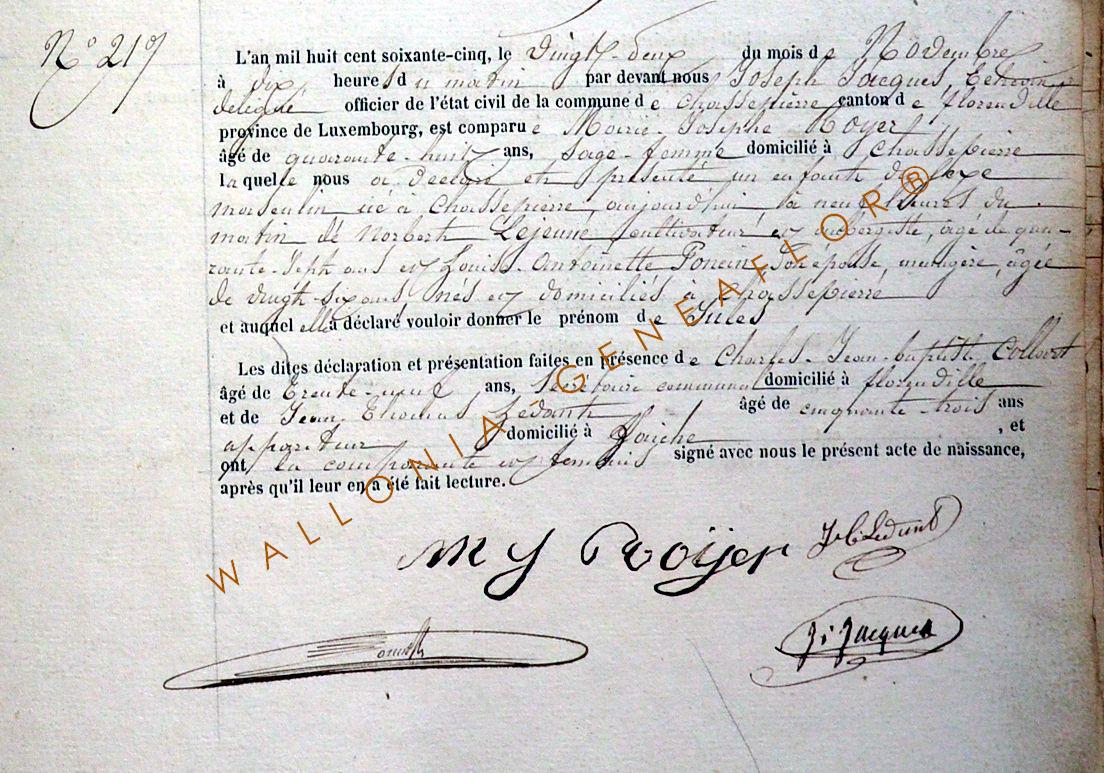 N° 219
L'an mil huit cent soixante-cinq, le vingt-deux du mois de Novembre
à dix heures du matin par devant nous Joseph Jacques, Echevin
délégué officier de l'état civil de la commune de Chassepierre canton de florenville
province de Luxembourg, est comparue Marie-Josephe Royer
âgé de quarante-huit ans, sage-femme domicilié à Chassepierre
laquelle nous a déclaré et présenté un enfant du sexe
masculin né à Chassepierre, aujourd'hui à neuf heures du
matin de Norbert Lejeune cultivateur et aubergiste, âgé de qua-
rante-sept ans et Louise-Antoinette Poncin, son épouse, ménagère, âgée
de vingt-six ans, nés et domiciliés à Chassepierre
et auquel elle a déclaré vouloir donner le prénom de Jules
Les dites déclaration et présentation faites en présence de Charles-Jean-baptiste
âgé de trente-neuf ans, secrétaire communal domicilié à florenville
et de Jean-Thomas Ledant âgé de cinquante-trois ans
appariteur domicilié à Laiche, et
ont la comparante et témoins signé avec nous le présent acte de naissance,
après qu'il leur en a été fait lecture.
M J Royer J. T. Ledant
J. Jacques
WALLONIA-GENEAFLOR®